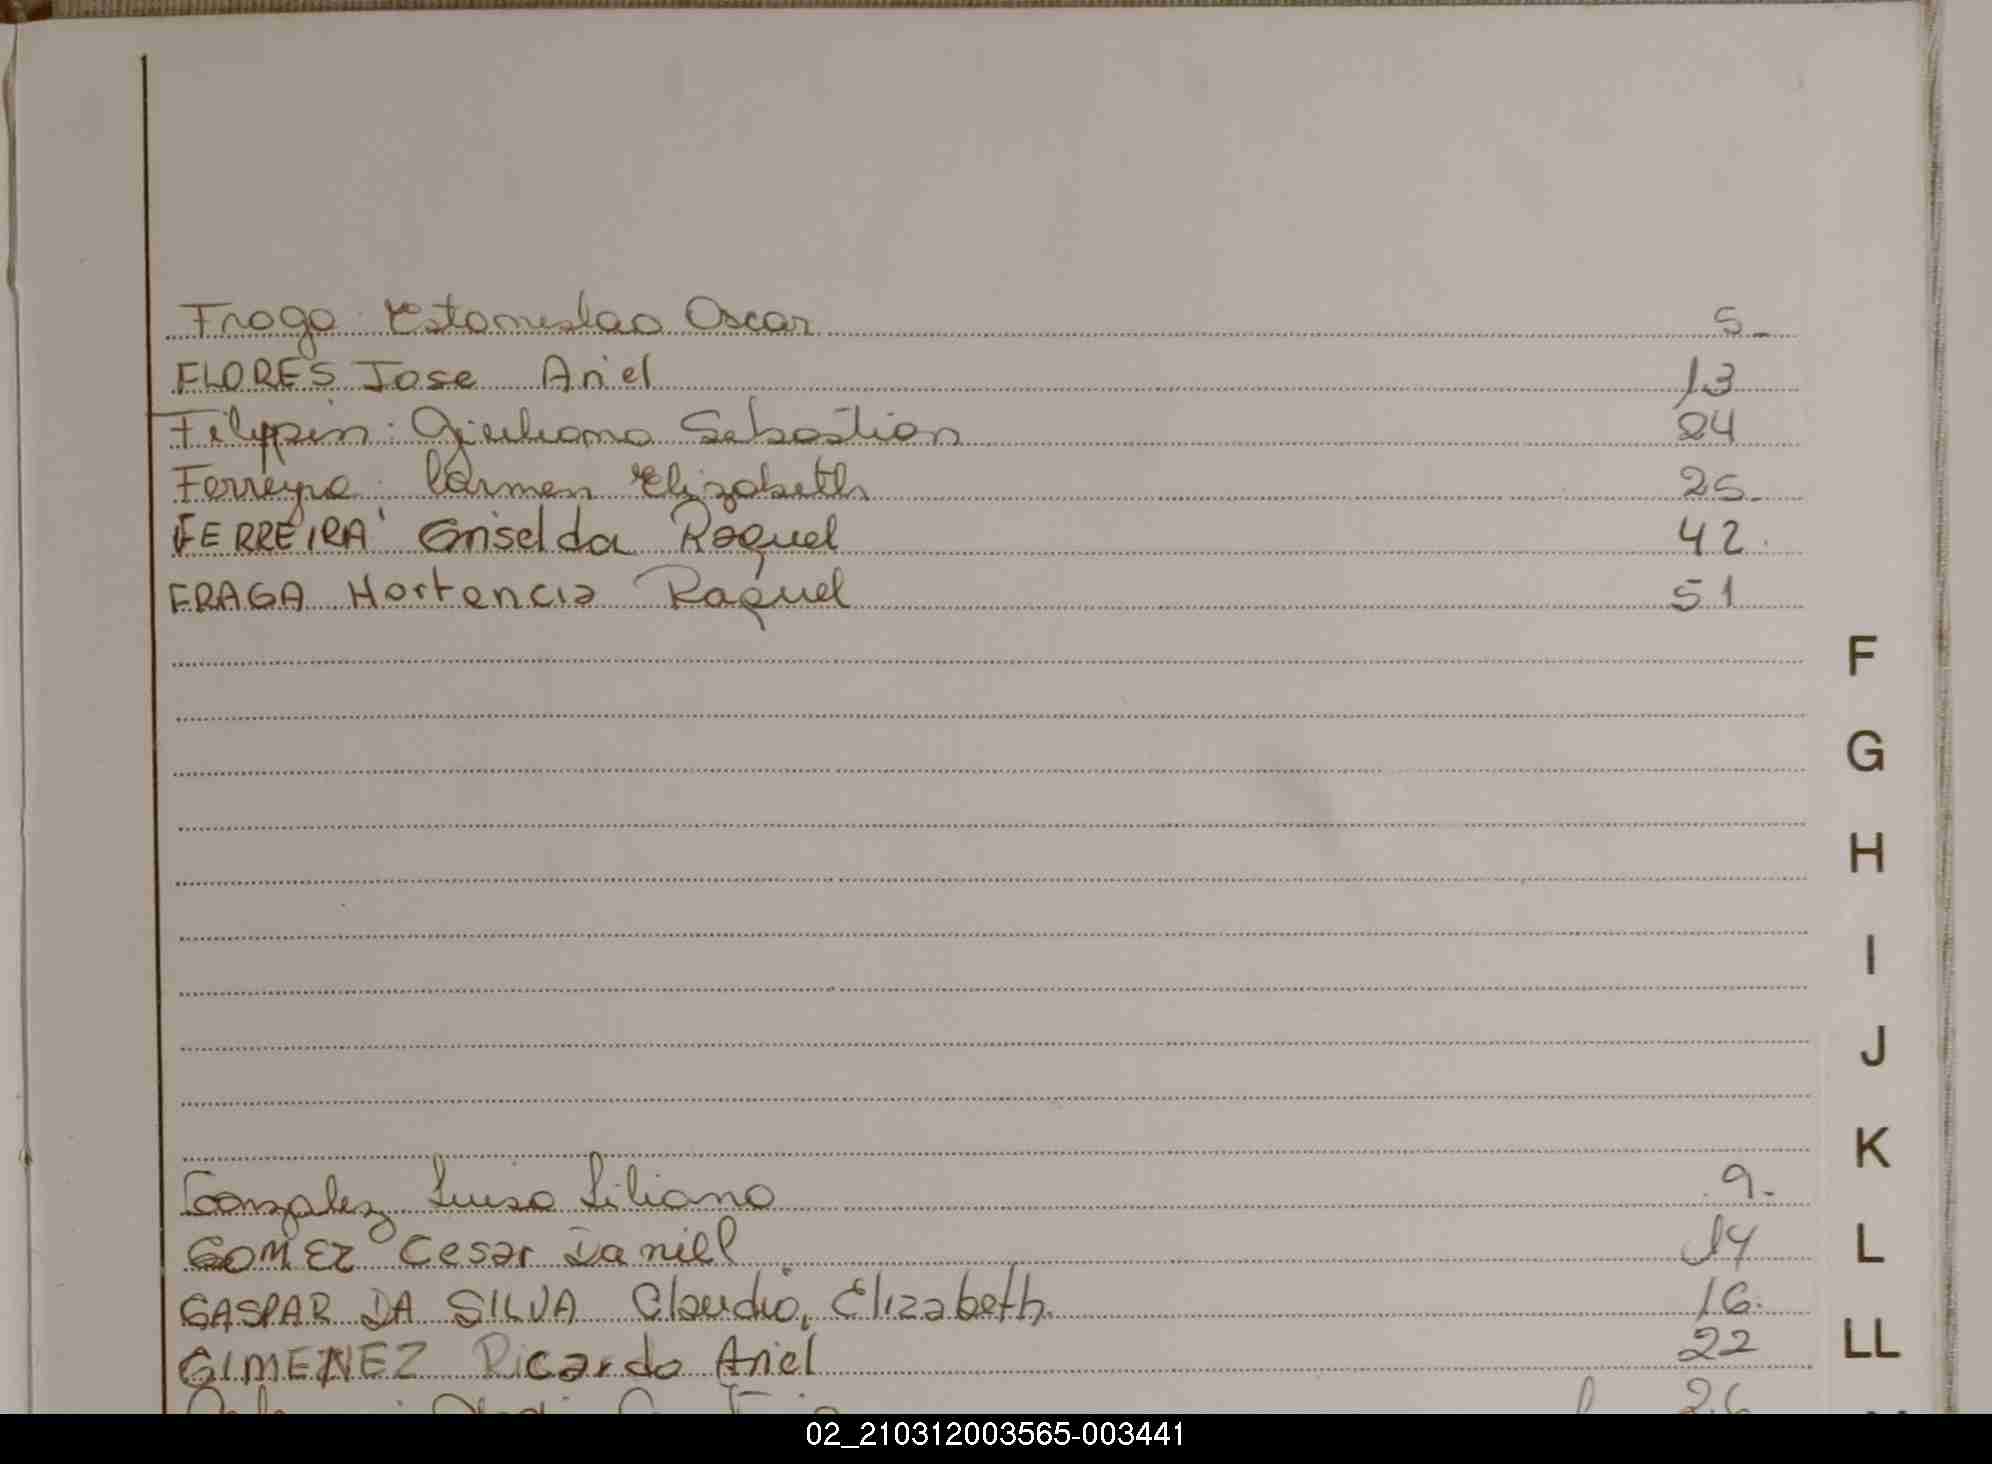 Fraga Estanislao Oscar 5-
FLORES Jose Ariel 13
Filyppin Giuliano Sebastian 24
Ferreyra Carmen Elizabeth 25-
FERREIRA Griselda Raquel 42
FRAGA Hortencia Raquel 51
F
G
H
I
J
K
Gonzalez Luisa Liliana 9-
GOMEZ Cesar Daniel 14
L
GASPAR DA SILVA Claudio, Elizabeth. 16.
GIMENEZ Ricardo Ariel 22
LL
26
02_210312003565-003441